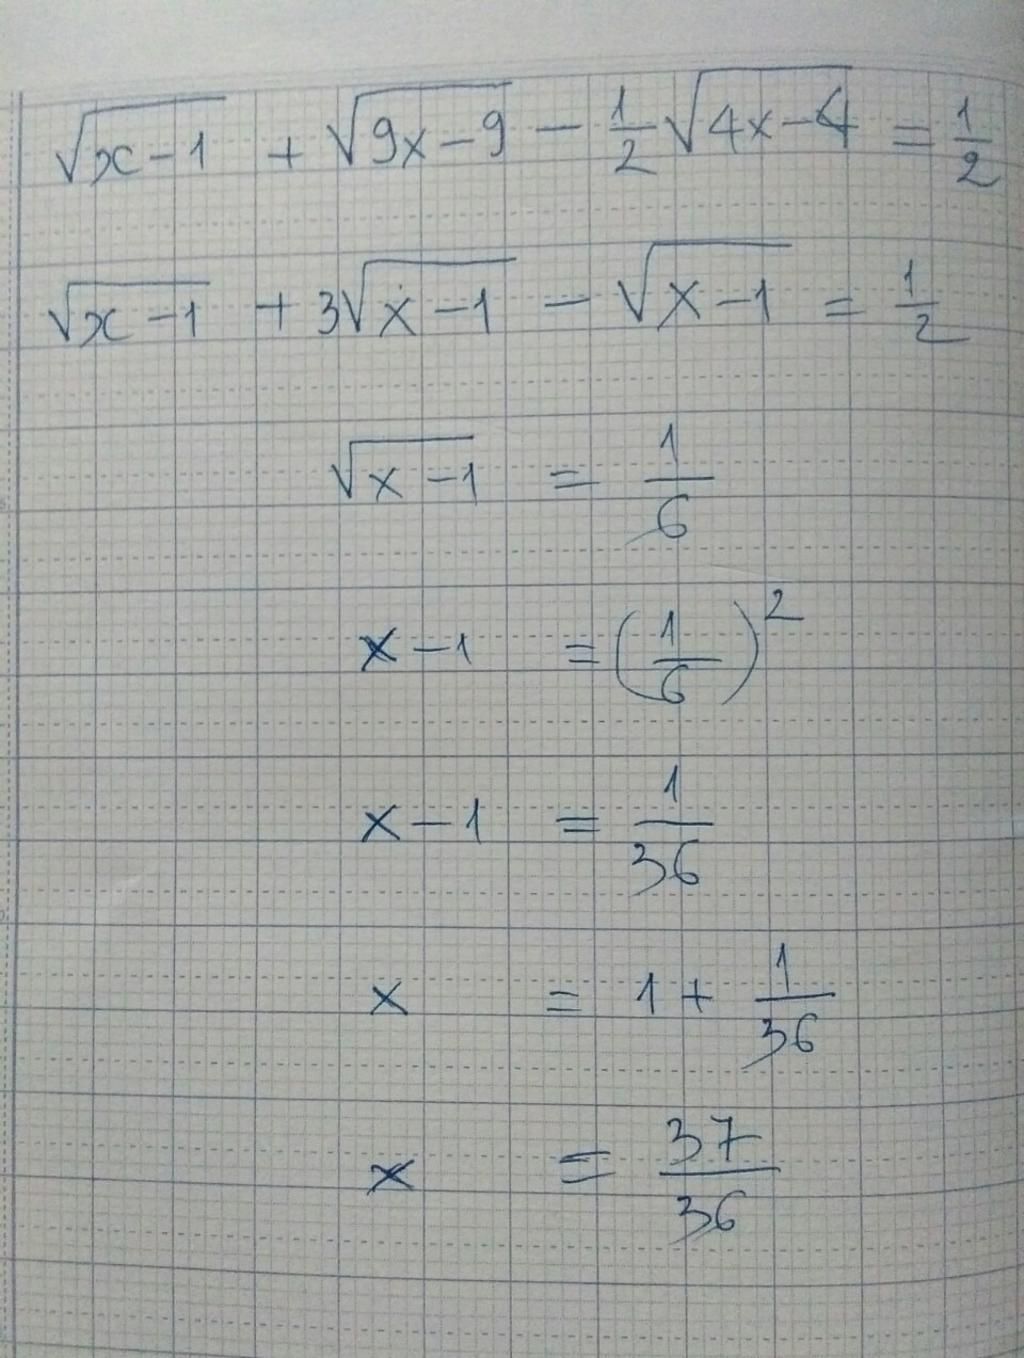 √(x-1) + √(9x-9) - 1/2 √(4x-4) = 1/2
√(x-1) + 3√(x-1) - √(x-1) = 1/2
√(x-1) = 1/6
x-1 = (1/6)²
x-1 = 1/36
x = 1 + 1/36
x = 37/36